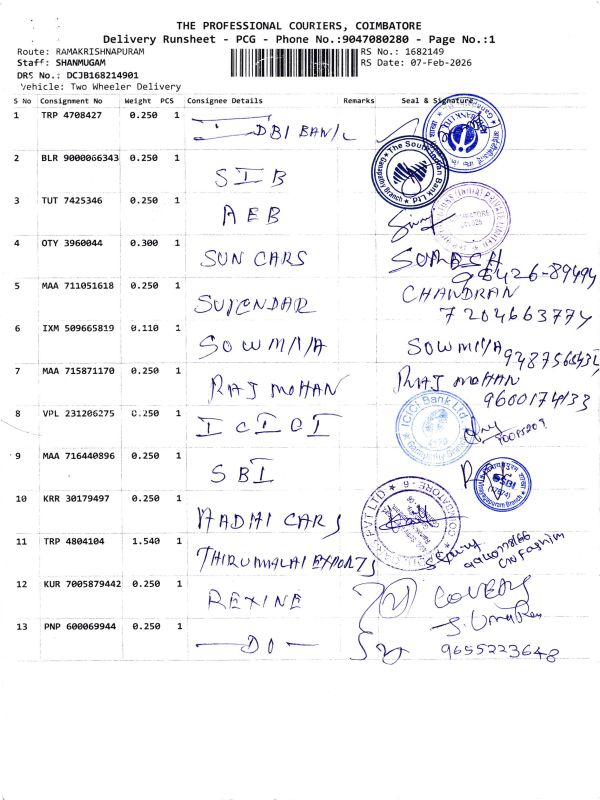 THE PROFESSIONAL COURIERS, COIMBATORE
Delivery Runsheet - PCG - Phone No.:9047080280 - Page No.:1
Route: RAMAKRISHNAPURAM RS No.: 1682149
Staff: SHANMUGAM RS Date: 07-Feb-2026
DRS No.: DCJB168214901
Vehicle: Two Wheeler Delivery
S No Consignment No Weight PCS Consignee Details Remarks Seal & Signature
1 TRP 4708427 0.250 1 IDBI BANK
2 BLR 9000066343 0.250 1 SIB
The South Indian Bank Ltd
Ganapathy Branch
3 TUT 7425346 0.250 1 AEB
4 OTY 3960044 0.300 1 SUN CARS SUMESH
98426-89494
5 MAA 711051618 0.250 1 SURENDAR CHANDRAN
7204663774
6 IXM 509665819 0.110 1 SOWMIYA SOWMIYA
7 MAA 715871170 0.250 1 RAJ MOHAN RAJ MOHAN
9600174133
8 VPL 231206275 0.250 1 ICICI
ICICI Bank Ltd
Ganapathy Branch
9 MAA 716440896 0.250 1 SBI
SBI
10 KRR 30179497 0.250 1 AADHI CARS
PVT LTD
COIMBATORE - 6
11 TRP 4804104 1.540 1 THIRUMALAI EXPORTS
CN Fashion
12 KUR 7005879442 0.250 1 REXINE COVERS
13 PNP 600069944 0.250 1 — DO —
9655223648